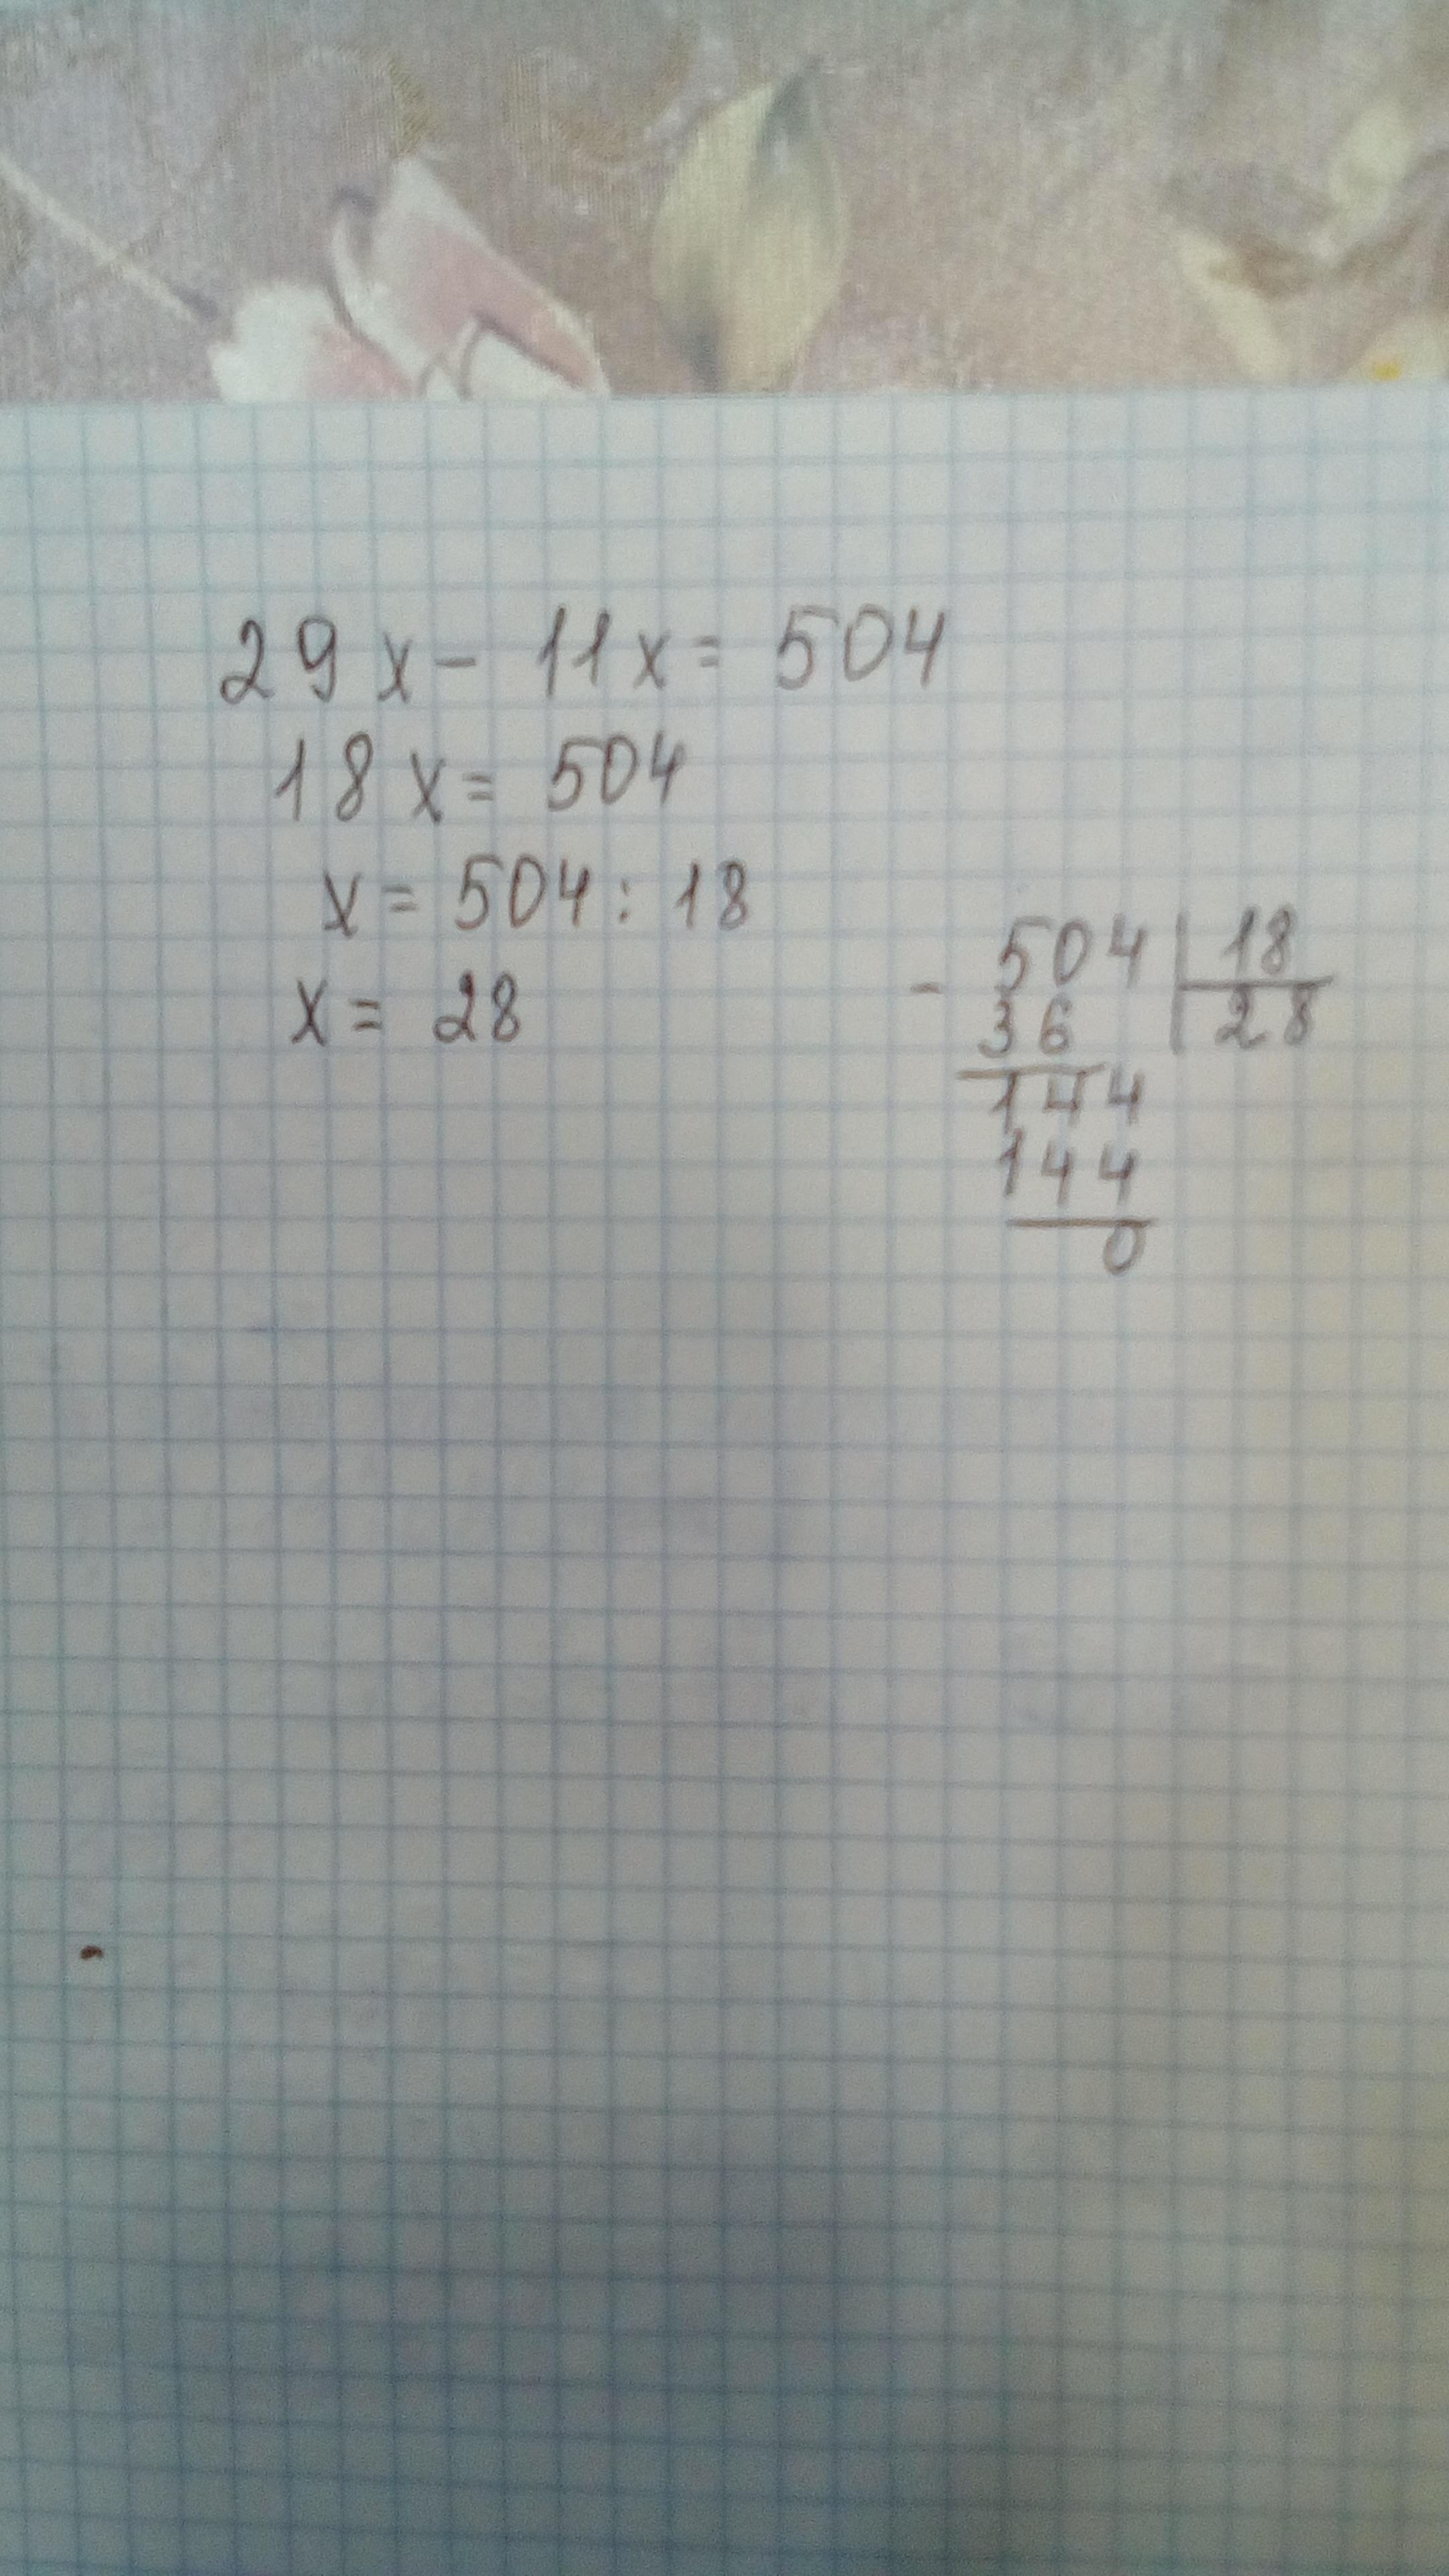 29x - 11x = 504
18x = 504
x = 504 : 18
x = 28
- 504 | 18
36 | 28
144
144
0